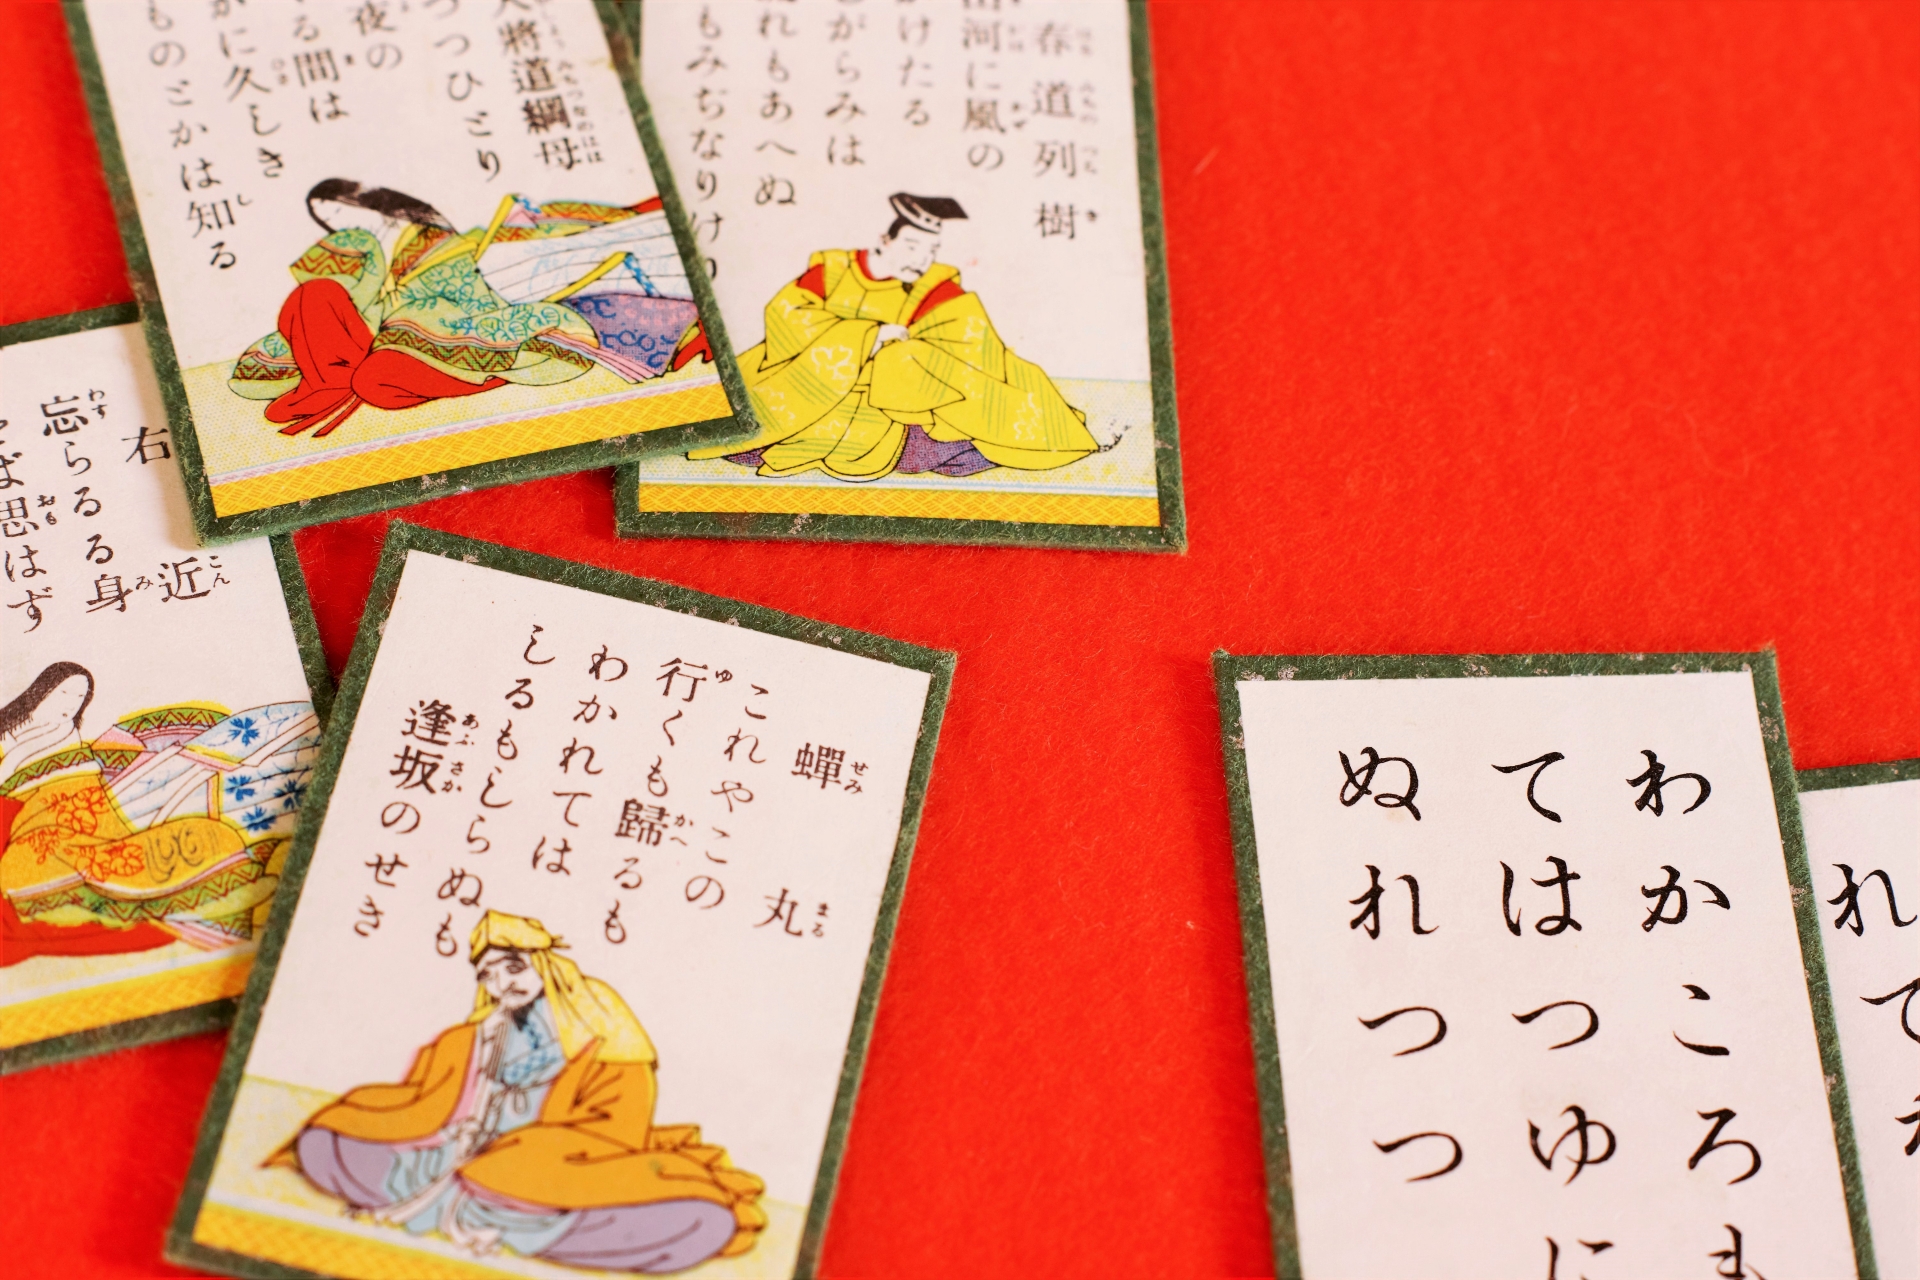 大將道綱母
つつひとり
夜の
る間は
かに久しき
ものとかは知る
春道列樹
山河に風の
かけたる
がらみは
れもあへぬ
もみぢなりけり
右
近
忘らるる身
をば思はず
蟬丸
これやこの
行くも歸るも
わかれては
しるもしらぬも
逢坂のせき
わかころも
てはつゆに
ぬれつつ
れ
て